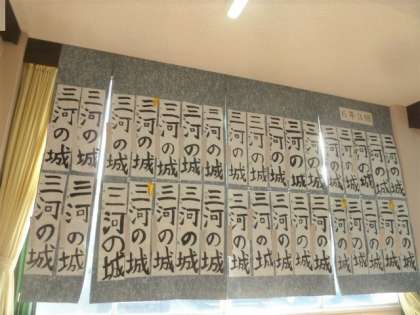 三河の城
三河の城
三河の城
三河の城
三河の城
三河の城
三河の城
三河の城
三河の城
三河の城
三河の城
三河の城
三河の城
三河の城
三河の城
三河の城
三河の城
三河の城
三河の城
三河の城
三河の城
三河の城
三河の城
三河の城
三河の城
三河の城
三河の城
三河の城
三河の城
三河の城
三河の城
三河の城
三河の城
三河の城